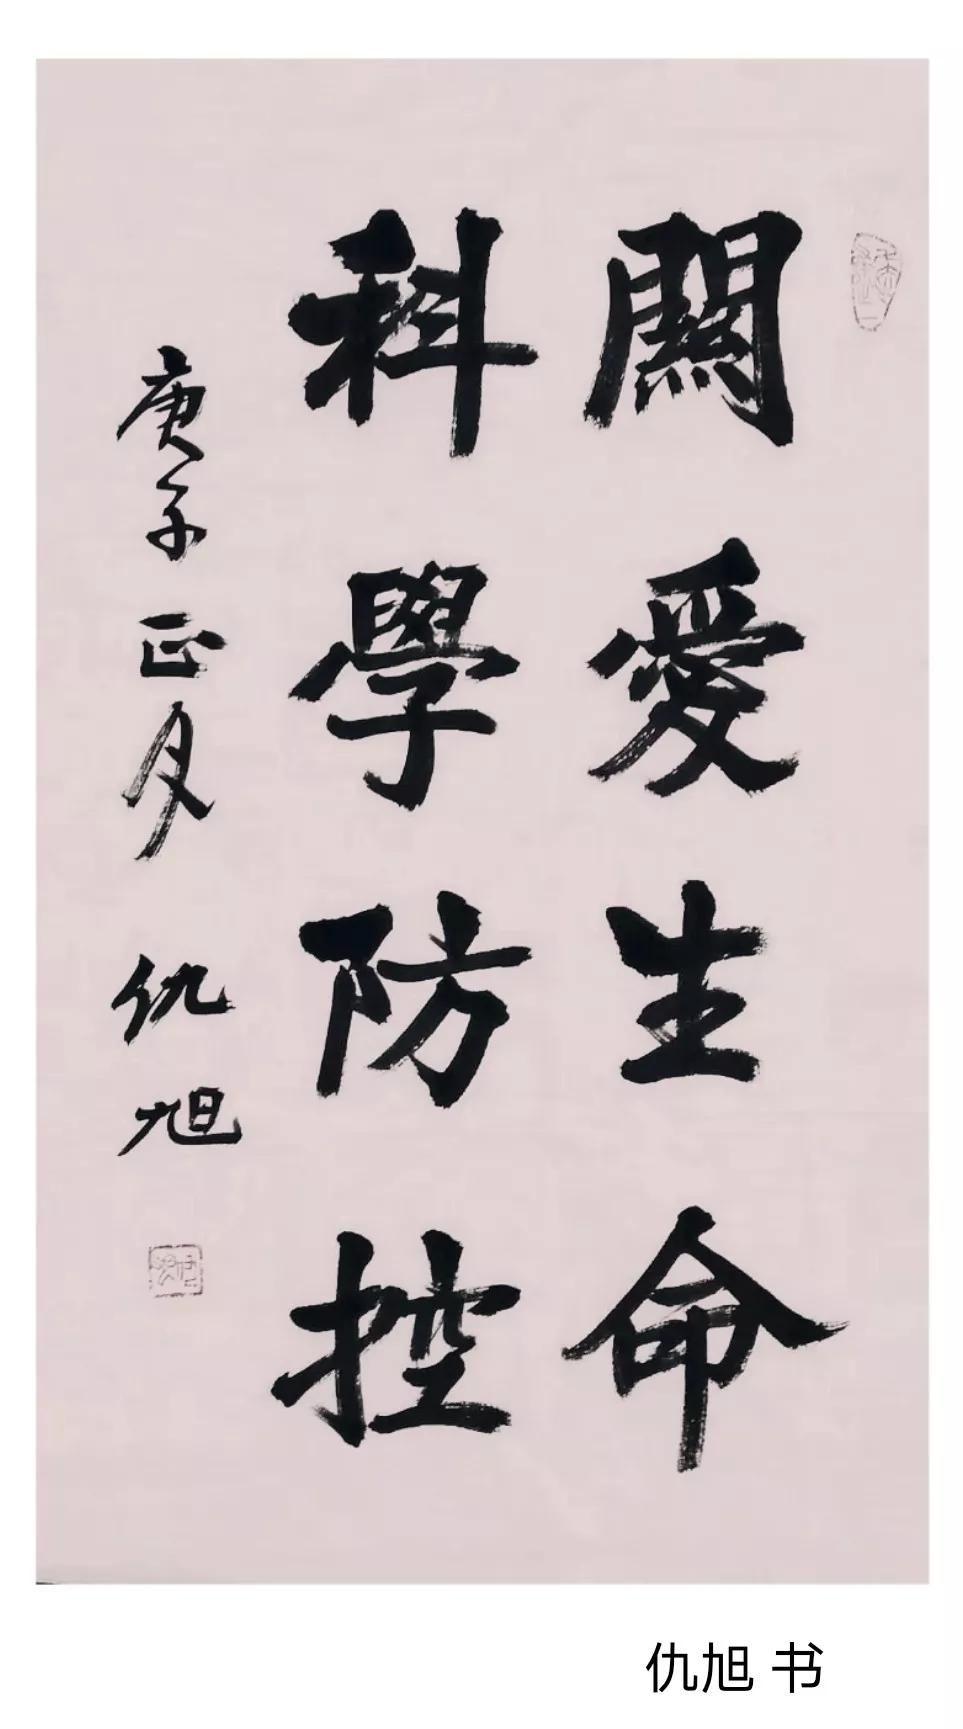 關愛生命
科學防控
庚子正月 仇旭
仇旭 书